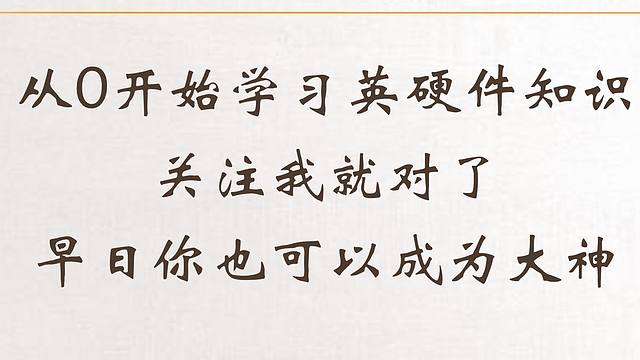 从0开始学习英硬件知识
关注我就对了
早日你也可以成为大神